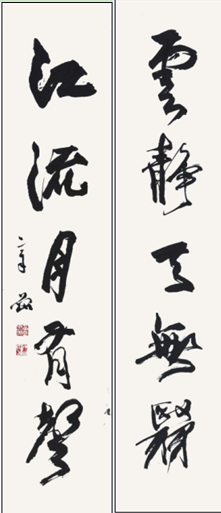 雲靜天無翳
江流月有聲